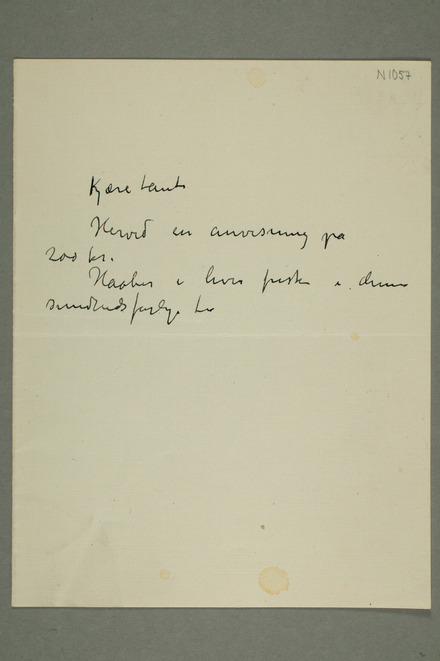 N 1057
Kjære tante
Herved en anvisning på
200 kr.
Haaber i lever friske i denne
sundhedsfarlige tid